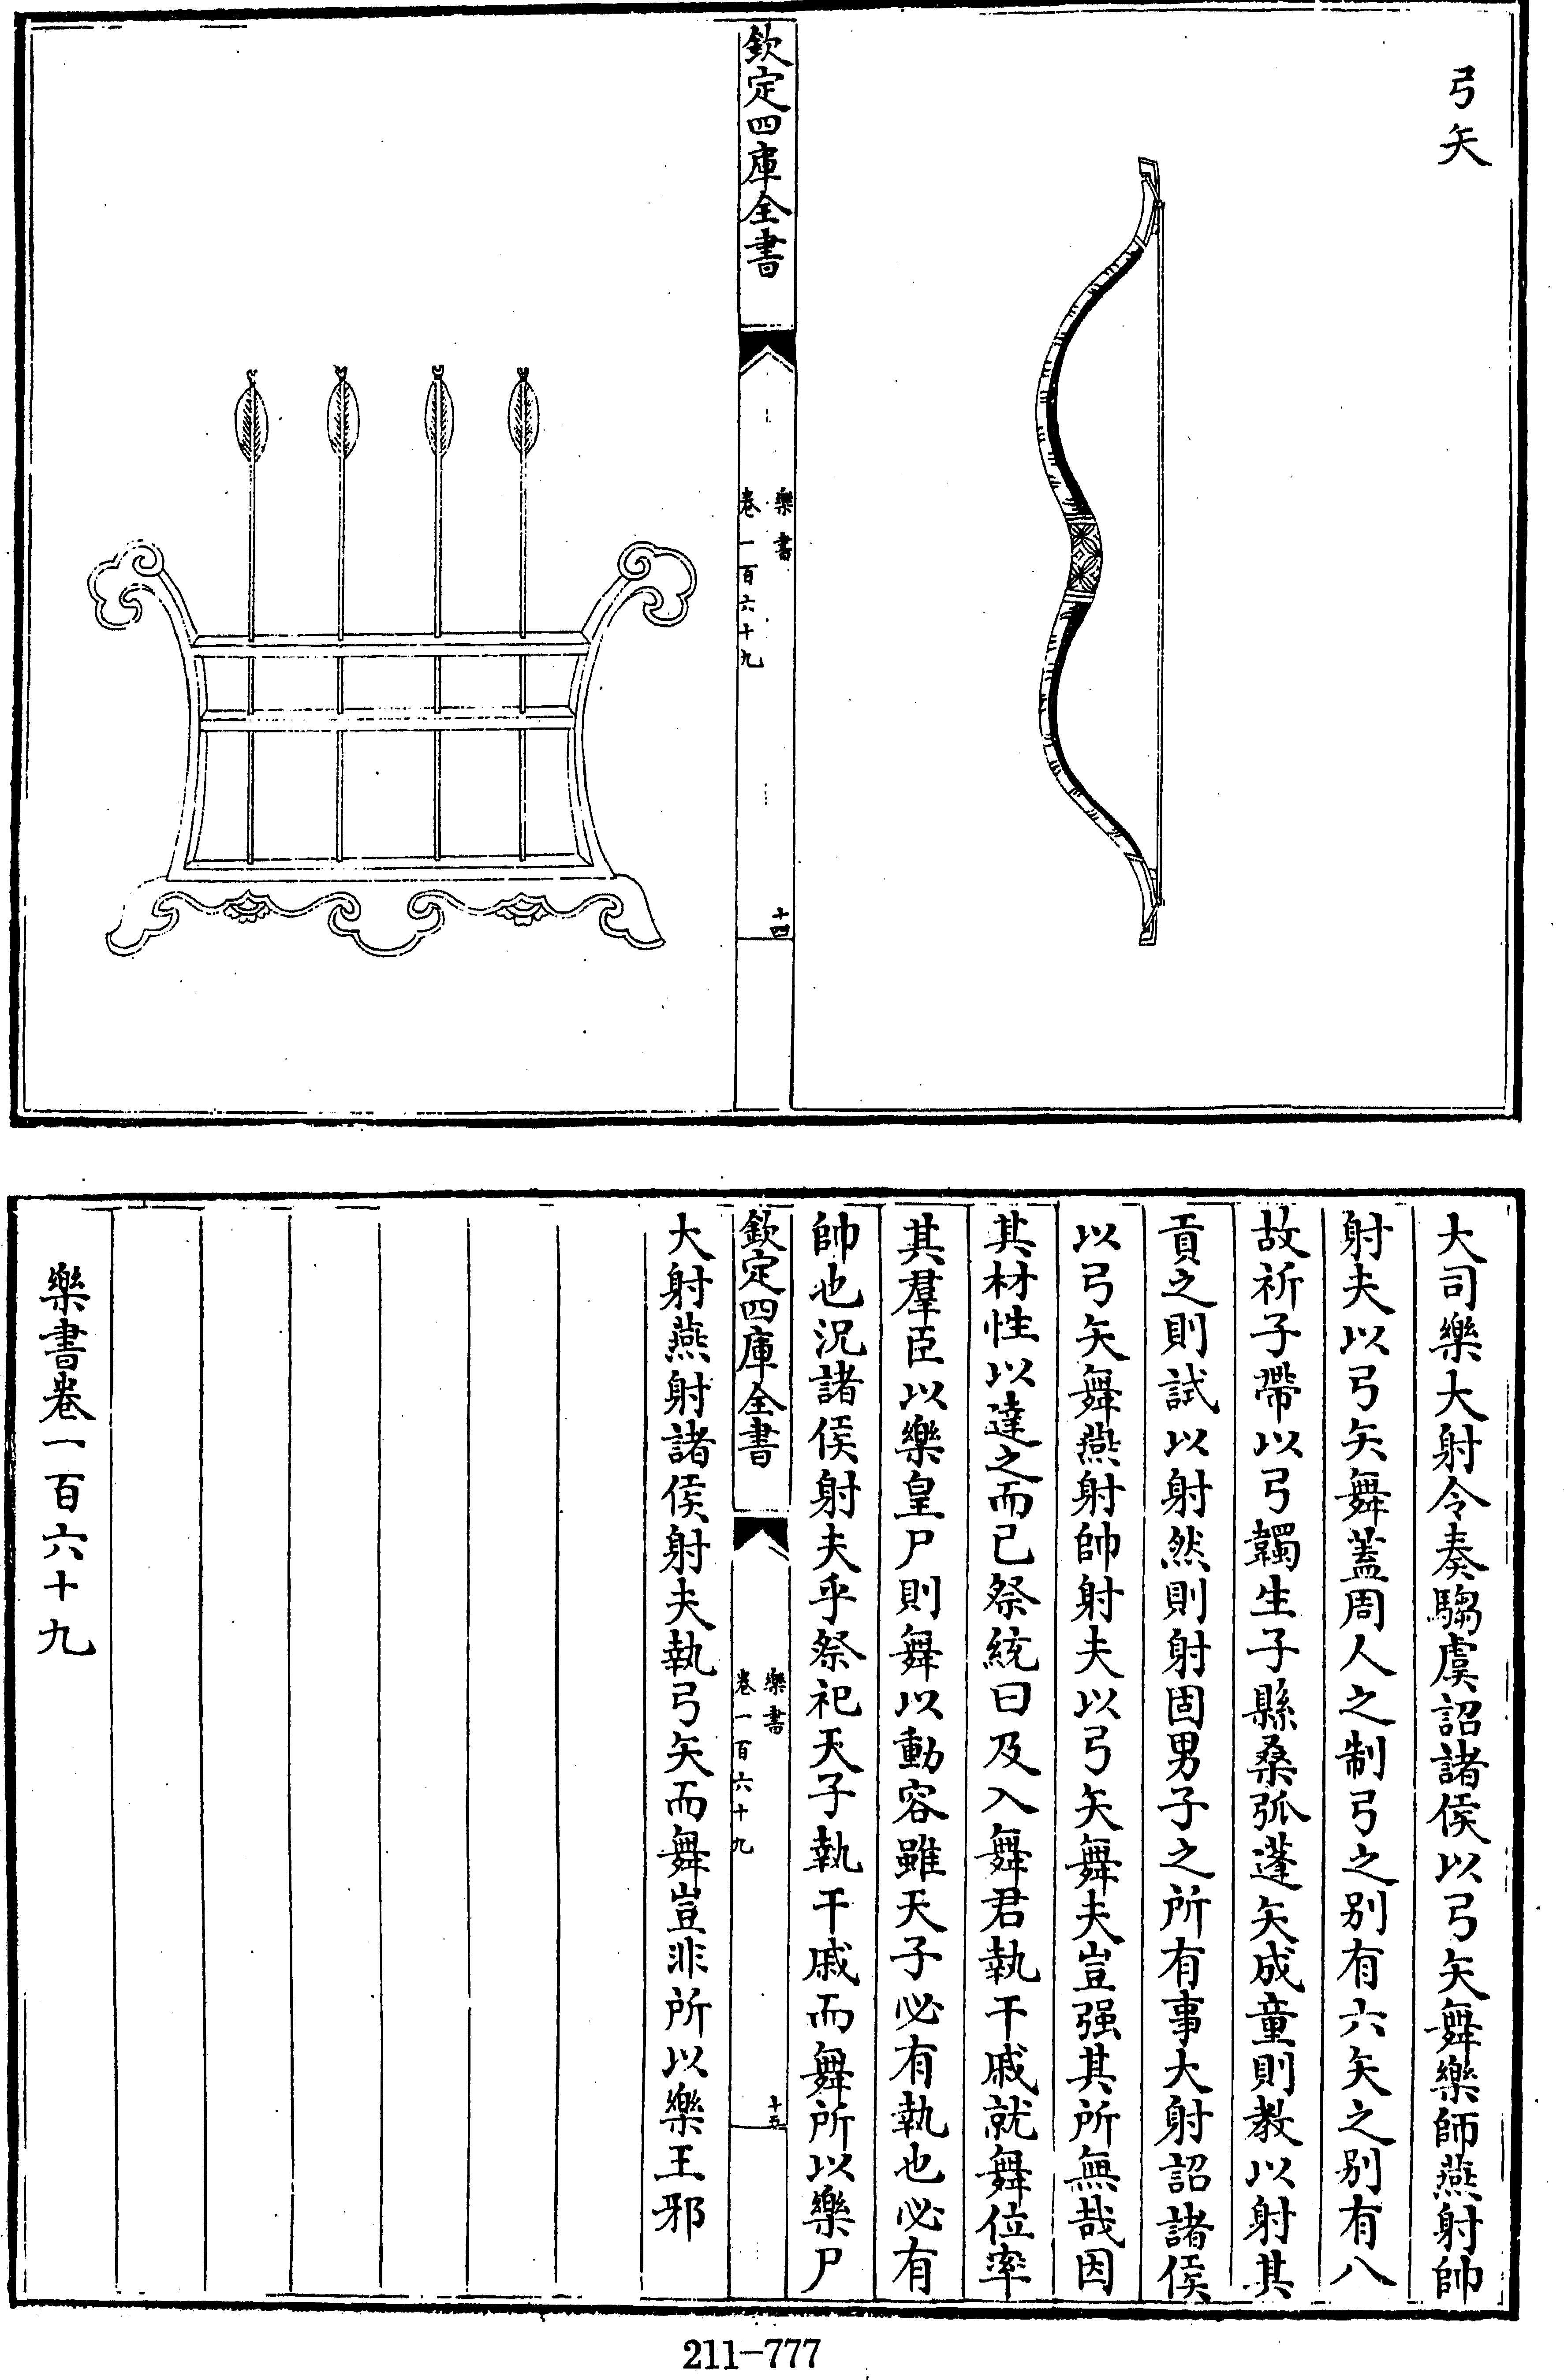 弓矢
欽定四庫全書
樂書
卷一百六十九
十四
大司樂大射令奏騶虞詔諸侯以弓矢舞樂師燕射帥
射夫以弓矢舞蓋周人之制弓之别有六矢之别有八
故祈子帶以弓韣生子縣桑弧蓬矢成童則教以射其
貢之則試以射然則射固男子之所有事大射詔諸侯
以弓矢舞燕射帥射夫以弓矢舞夫豈强其所無哉因
其材性以達之而已祭統曰及入舞君執干戚就舞位率
其羣臣以樂皇尸則舞以動容雖天子必有執也必有
帥也況諸侯射夫乎祭祀天子執干戚而舞所以樂尸
欽定四庫全書
樂書
卷一百六十九
十五
大射燕射諸侯射夫執弓矢而舞豈非所以樂王邪
樂書卷一百六十九
211-777